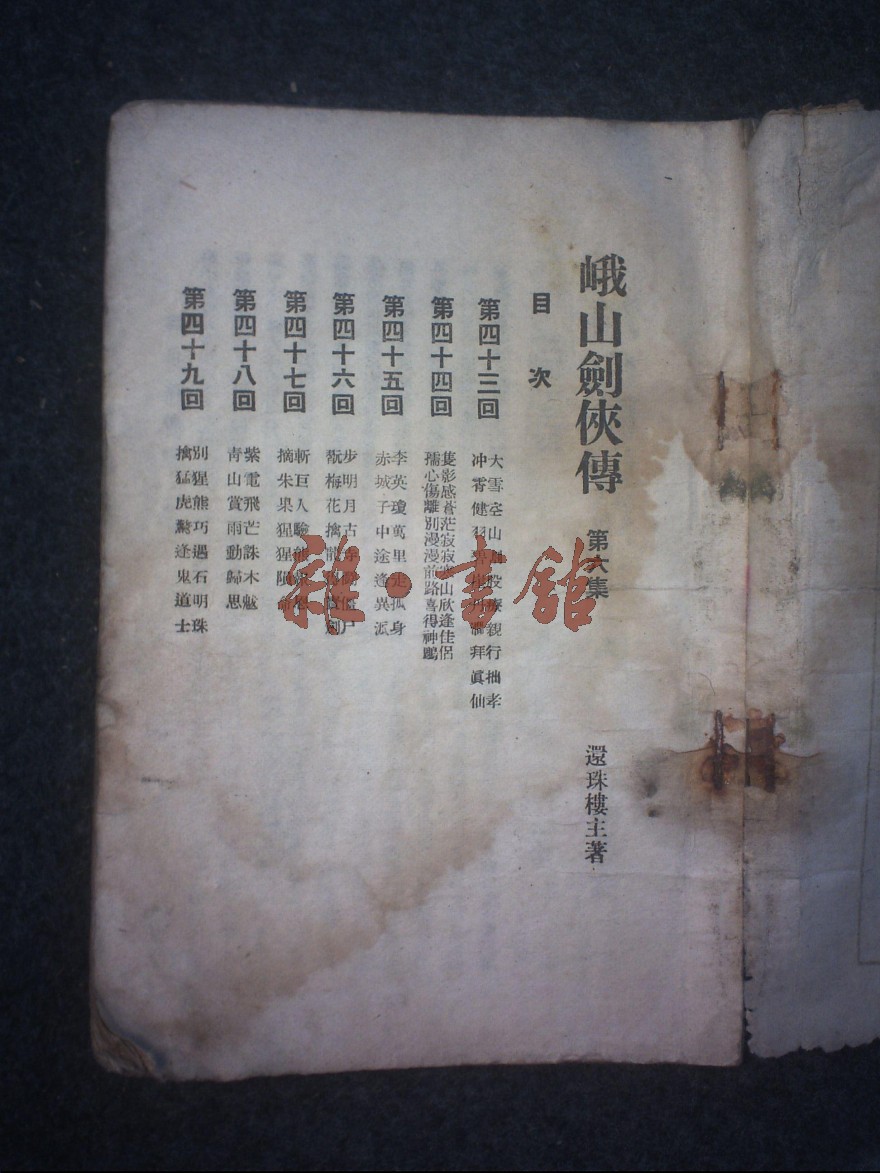 峨山劍俠傳 第六集 還珠樓主著
目次
第四十三回
大雪空山割股療親行拙孝
冲霄健羽 拜眞仙
第四十四回
隻影感蒼茫寂寂寒山欣逢佳侶
孺心傷離別漫漫前路喜得神鵰
第四十五回
李英瓊萬里走孤身
赤城子中途逢異派
第四十六回
步明月古寺 僵尸
翫梅花擒龍 寶劍
第四十七回
斬巨人
摘朱果猩猩隕命
第四十八回
紫電飛芒誅木魃
青山賞雨動歸思
第四十九回
別猩熊巧遇石明珠
擒猛虎驚逢鬼道士
雜·書館